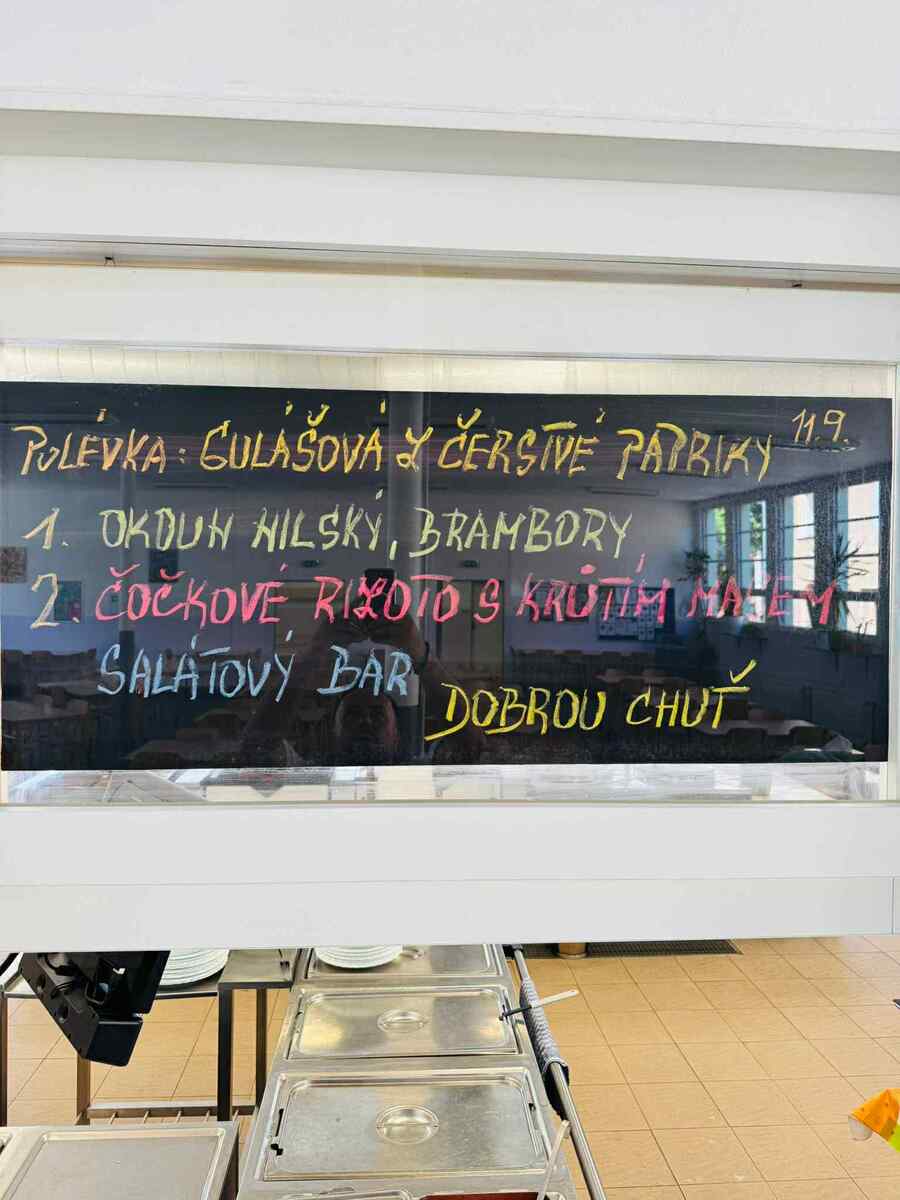 POLÉVKA: GULÁŠOVÁ Z ČERSTVÉ PAPRIKY 11.9.
1. OKOUN NILSKÝ, BRAMBORY
2. ČOČKOVÉ RIZOTO S KRŮTÍM MASEM
SALÁTOVÝ BAR
DOBROU CHUŤ